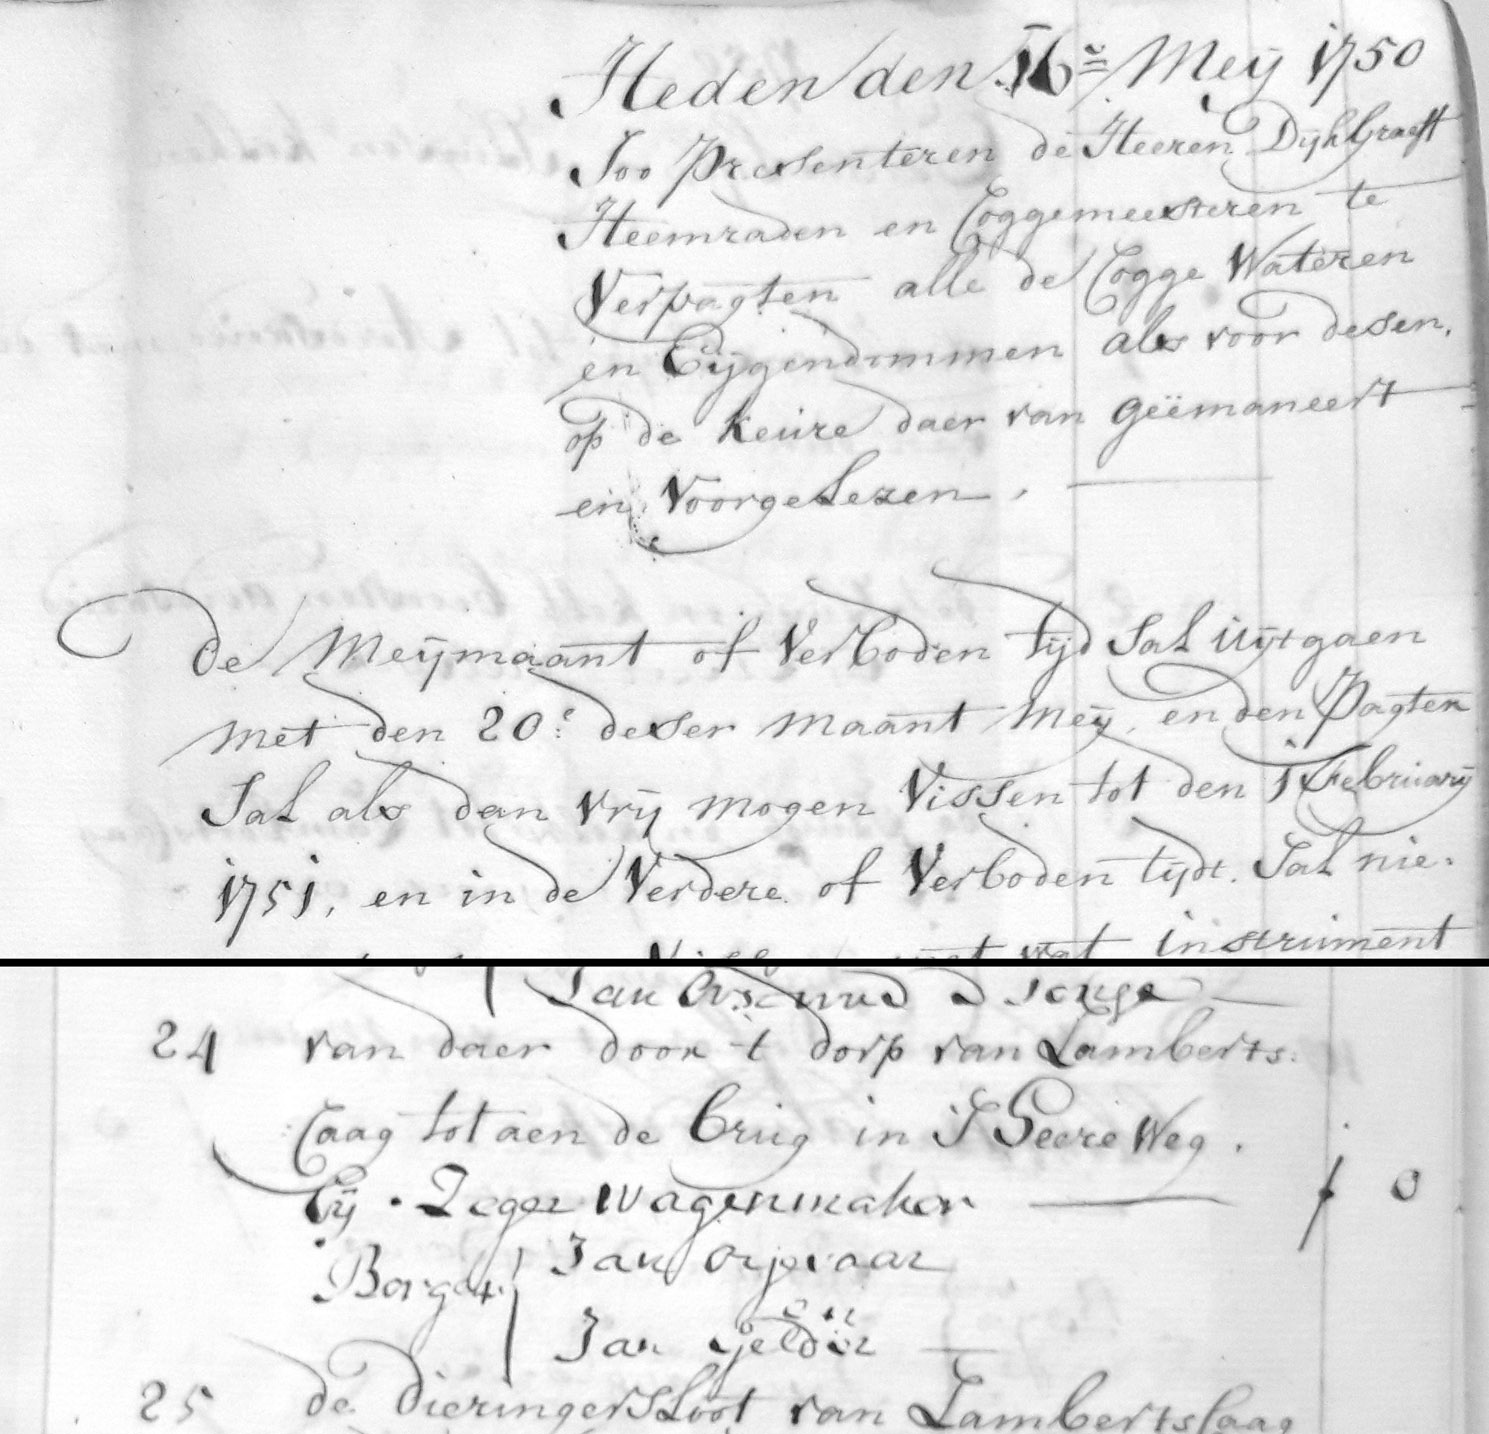 Heden den 16e Meij 1750
Soo Presenteren de Heeren Dijkgraeff
Heemraden en Coggemeesteren te
Verpagten alle de Cogge Wateren
en Eijgendommen als voor desen,
op de keure daer van geëmaneert
en Voorgelezen.
De Meijmaant of Verboden tijd Sal uijtgaen
met den 20e deser maant Meij, en den Pagter
Sal als dan vrij mogen Vissen tot den 1 February
1751, en in de Verdere of Verboden tijdt. Sal nie-
met wat instrument
Jan D Jonge
24 van daer door t dorp van Lamberts:
Caag tot aen de brug in S Heere Weg.
bij. Zeger Wagenmaker f 0
Borgen Jan
Jan Gelder
25 de Dieringersloot van LambertsCaag